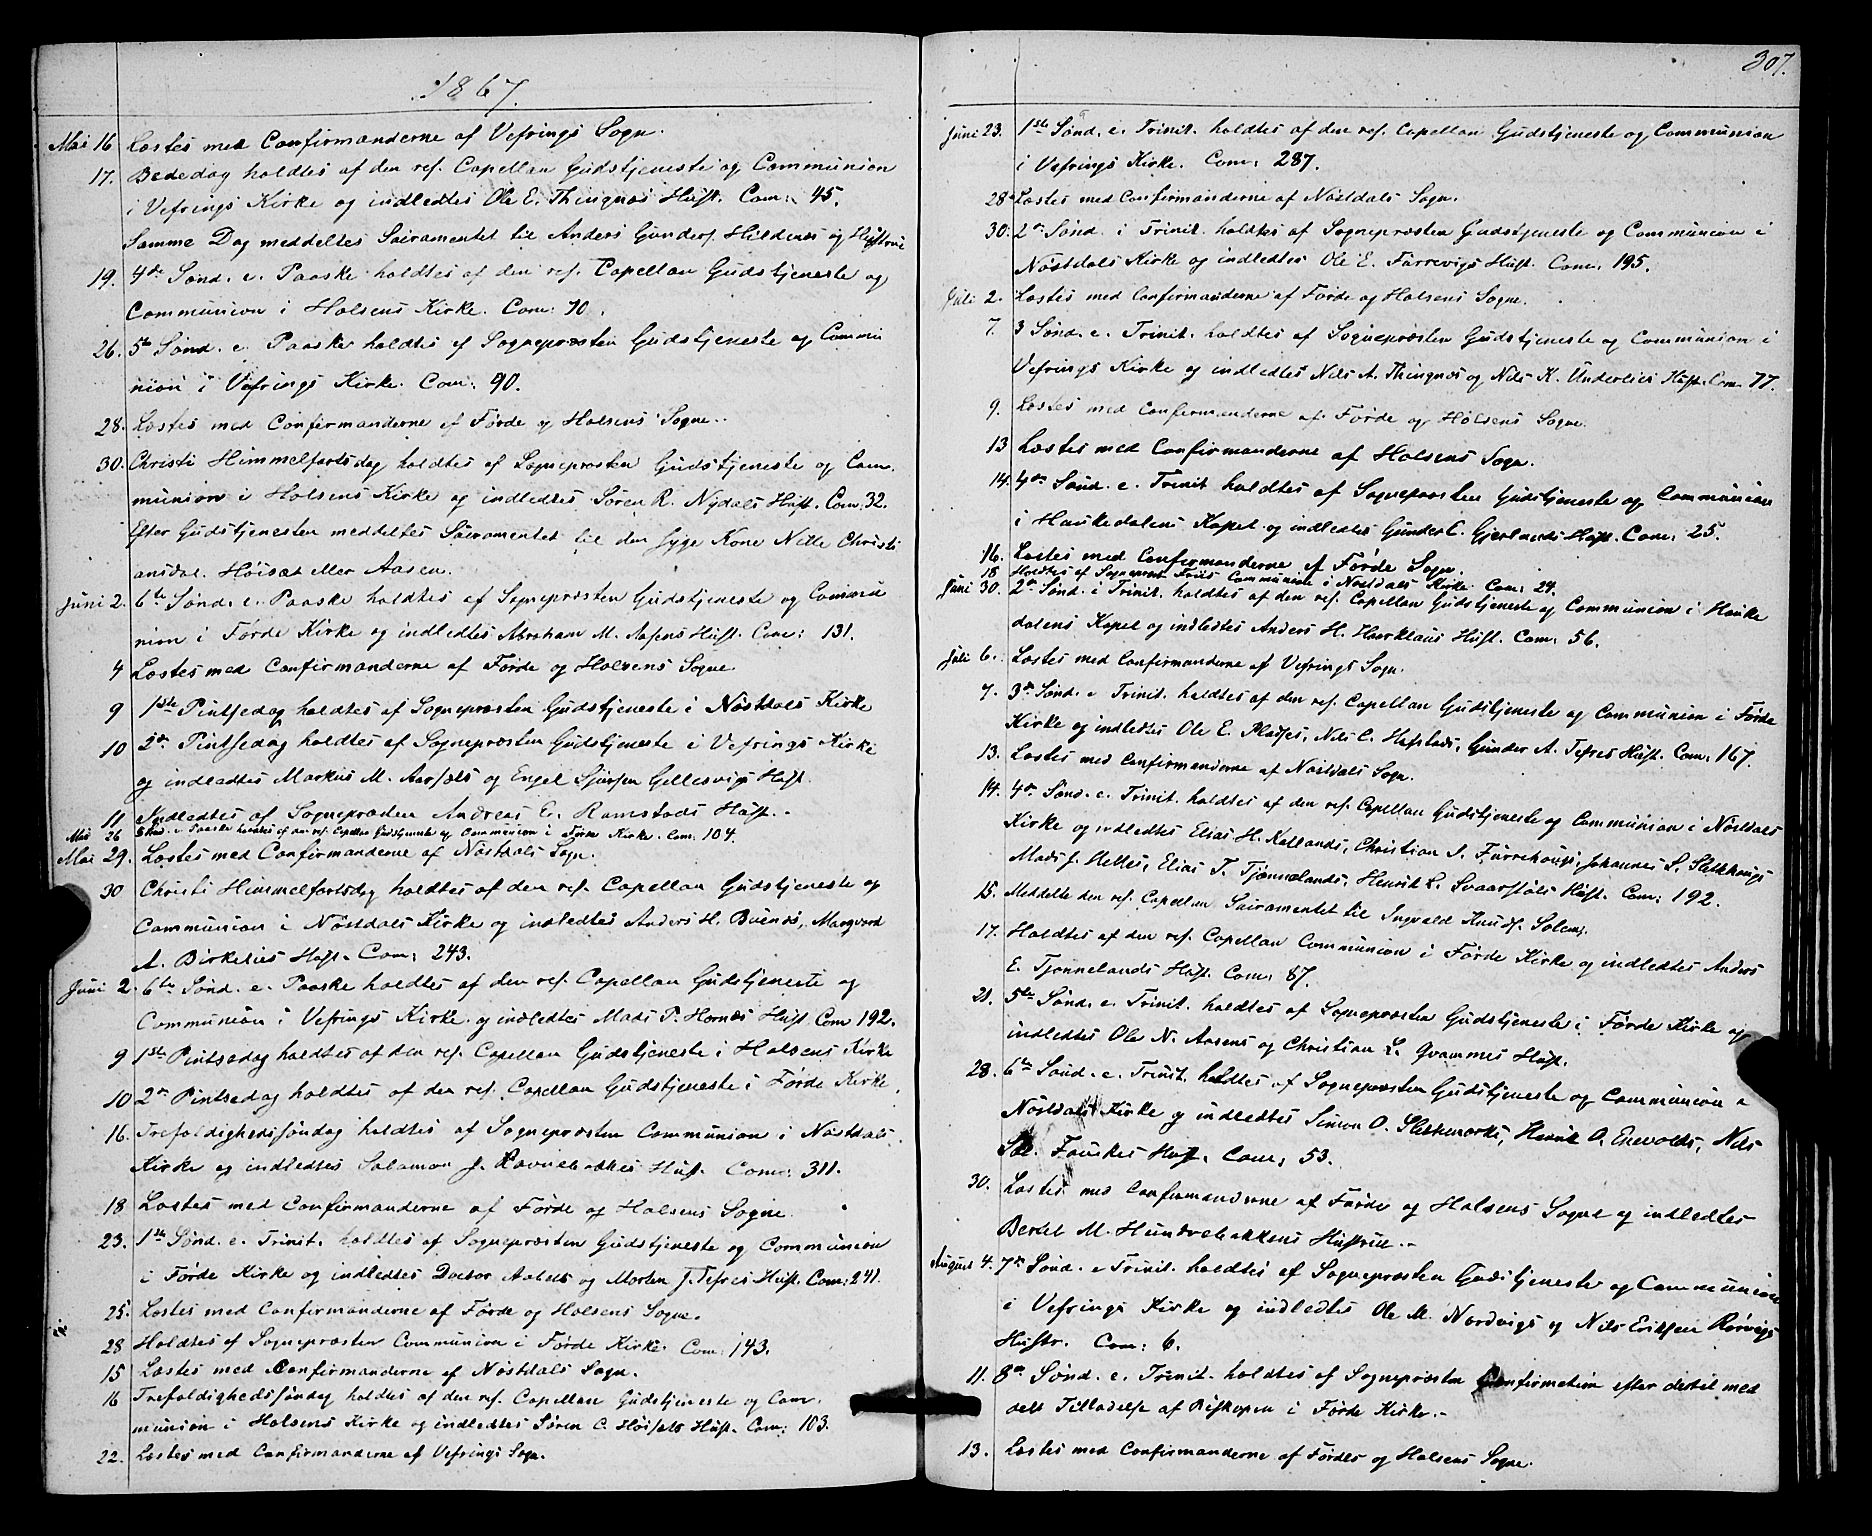 1867.
Mai 16 Læstes med Confirmanderne af Vefrings Sogn.
17. Bededag holdtes af den res. Capellan Gudstjeneste og Communion
i Vefrings Kirke og indledtes Ole E. Thingnæs Hust. Com: 45.
Samme Dag meddeltes Sacramentet til Anders Gunders. Hildenæs og Hustrue
19. 4de Sønd. e. Paaske holdtes af den res. Capellan Gudstjeneste og
Communion i Holsens Kirke. Com: 70.
26. 5te Sønd. e. Paaske holdtes af Sognepræsten Gudstjeneste og Commu
nion i Vefrings Kirke. Com: 90.
28. Læstes med Confirmanderne af Førde og Holsens Sogne.
30. Christi Himmelfartsdag holdtes af Sognepræsten Gudstjeneste og Com
munion i Holsens Kirke og indledtes Søren R. Nydals Hust. Com: 32.
Efter Gudstjenesten meddeltes Sacramentet til den syge Kone Nille Christi
ansdat. Høisæt eller Aasen.
Juni 2. 6te Sønd. e. Paaske holdtes af Sognepræsten Gudstjeneste og Commu
nion i Førde Kirke og indledtes Abraham M. Aasens Hust. Com: 131.
4 Læstes med Confirmanderne af Førde og Holsens Sogne
9 1ste Pintsedag holdtes af Sognepræsten Gudstjeneste i Nøstdals Kirke
10 2den Pintsedag holdtes af Sognepræsten Gudstjeneste i Vefrings Kirke
og indledtes Markus M. Aarsæts og Engel Sjursen Gellesvigs Hust.
11 Indledtes af Sognepræsten Andreas E. Ramstads Hust.
Mai 26 5 Sønd. e. Paaske holdtes af den res. Capellan Gudstjeneste og Communion i Førde Kirke. Com: 104.
Mai 29. Læstes med Confirmanderne af Nøstdals Sogn.
30 Christi Himmelfartsdag holdtes af den res. Capellan Gudstjeneste og
Communion i Nøstdals Kirke og indledtes Anders H. Buenæs, Marqvard
A. Birkelies Hust. Com: 243.
Juni 2. 6te Sønd. e. Paaske holdtes af den res. Capellan Gudstjeneste og
Communion i Vefrings Kirke og indledtes Mads P. Hornæs Hust Com 192.
9 1ste Pintsedag holdtes af den res. Capellan Gudstjeneste i Holsens Kirke
10 2den Pintsedag holdtes af den res. Capellan Gudstjeneste i Førde Kirke.
16. Trefoldighedssøndag holdtes af Sognepræsten Communion i Nøstdals
Kirke og indledtes Salamon J. Ravnebakkes Hust. Com: 311.
18 Læstes med Confirmanderne af Førde og Holsens Sogne.
23. 1ste Sønd. e. Trinit. holdtes af Sognepræsten Gudstjeneste og Communion
i Førde Kirke og indledtes Doctor og Morten J. Tefres Hust. Com: 241.
25. Læstes med Confirmanderne af Førde og Holsens Sogne.
28 Holdtes af Sognepræsten Communion i Førde Kirke. Com: 143.
15 Læstes med Confirmanderne af Nøstdals Sogn.
16 Trefoldighedssøndag holdtes af den res. Capellan Gudstjeneste og Com
munion i Holsens Kirke og indledtes Søren C. Høisæts Hust. Com: 103.
22. Læstes med Confirmanderne af Vefrings Sogn.
307.
Juni 23. 1ste Sønd. e. Trinit. holdtes af den res. Capellan Gudstjeneste og Communion
i Vefrings Kirke. Com: 287.
28 Læstes med Confirmanderne af Nøstdals Sogn.
30. 2den Sønd. i Trinit. holdtes af Sognepræsten Gudstjeneste og Communion i
Nøstdals Kirke og indledtes Ole E. Furrevigs Hust. Com: 195.
Juli 2. Læstes med Confirmanderne af Førde og Holsens Sogne.
7. 3 Sønd. e. Trinit. holdtes af Sognepræsten Gudstjeneste og Communion i
Vefrings Kirke og indledtes Nils A. Thingnæs og Nils K. Underlies Hust. Com. 77.
9. Læstes med Confirmanderne af Førde og Holsens Sogne.
13 Læstes med Confirmanderne af Holsens Sogn.
14. 4de Sønd. e. Trinit holdtes af Sognepræsten Gudstjeneste og Communion
i Haukedalens Kapel og indledtes Gunder C. Gjerlands Hust. Com: 25.
16. Læstes med Confirmanderne af Førde Sogn.
18 Holdtes af Sognepræst Friis Communion i Nøstdals Kirke Com: 24.
Juni 30. 2den Sønd. i Trinit. holdtes af den res. Capellan Gudstjeneste og Communion i Hauke
dalens Kapel og indledtes Anders H. Hust. Com: 56.
Juli 6. Læstes med Confirmanderne af Vefrings Sogn.
7. 3de Sønd. e Trinit. holdtes af den res. Capellan Gudstjeneste og Communion i Førde
Kirke og indledtes Ole E. Pladses, Nils C. Hafstads, Gunder A. Tefres Hust. Com: 167.
13. Læstes med Confirmanderne af Nøstdals Sogn.
14. 4de Sønd. e. Trinit. holdtes af den res. Capellan Gudstjeneste og Communion i Nøstdals
Kirke og indledtes Elias H. Kallands, Christian S. Furrehougs, Johannes S.
Mads J. Elias T. Tjønnelands, Henrik L. Svaarstøls Hust. Com: 192.
15. Meddelte den res. Capellan Sacramentet til Ingvald Knuds. Solem.
17. Holdtes af den res. Capellan Communion i Førde Kirke og indledtes Anders
E. Tjønnelands Hust. Com: 87.
21. 5te Sønd. e. Trinit. holdtes af Sognepræsten Gudstjeneste i Førde Kirke og
indledtes Ole N. Aasens og Christian L. Qvammes Hust.
28. 6te Sønd. e. Trinit. holdtes af Sognepræsten Gudstjeneste og Communion i
Nøstdals Kirke og indledtes Simon O. Henrik O. Enevolds, Nils
Fauskes Hust. Com: 53.
30. Læstes med Confirmanderne af Førde og Holsens Sogne og indledtes
Bertel M. Hundvebakkens Hustrue.
August 4. 7de Sønd. e Trinit. holdtes af Sognepræsten Gudstjeneste og Communion
i Vefrings Kirke og indledtes Ole M. Nordvigs og Nils Eriksen Rørvigs
Hustr. Com: 6.
11. 8de Sønd. e. Trinit. holdtes af Sognepræsten Confirmation efter dertil med
delt Tilladelse af Biskopen i Førde Kirke.
13. Læstes med Confirmanderne af Førdes og Holsens Sogne.